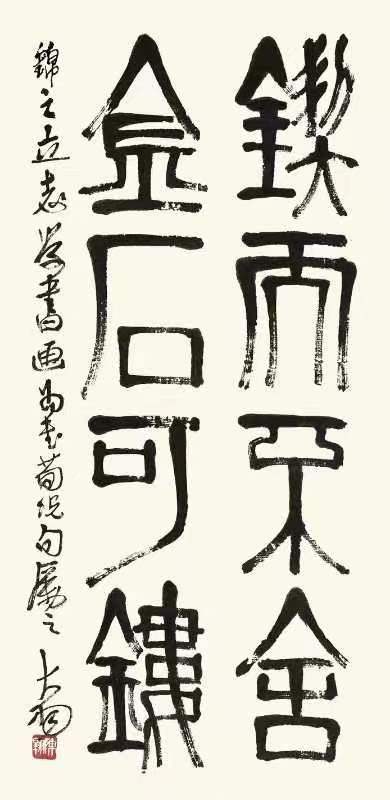 鍥而不舍
金石可鏤
錦之立志學書画為書荀況句屬之 大翔